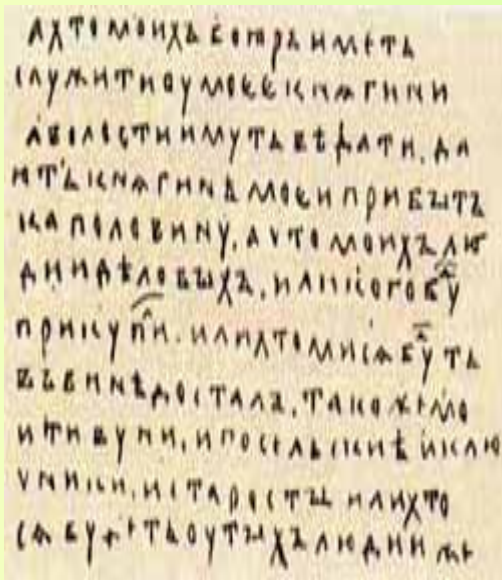 а хто моихъ боꙗръ иметь
служити оу моее кнѧгини
а волости имуть вѣдати, да
ють кнѧгинѣ моеи прибытъ
ка половину, а что моихъ лю
дии дѣловыхъ, или кого буⷣ
прикупиⷧ. или хто ми сѧ буⷣть
въ винѣ досталъ, такоже мо
и тивуни, и посельскиѣ и клю
чники, и старосты или хто
сѧ будеть оу тыхъ людии же